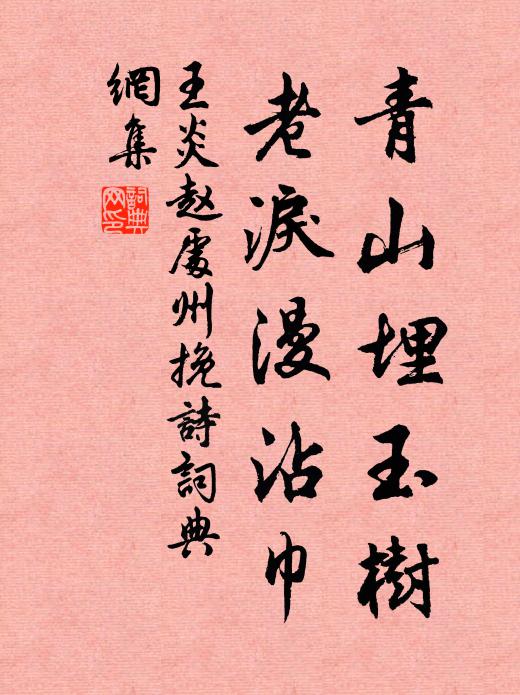 青山埋玉樹
老淚漫沾巾
王炎赵處州挽詩詞典
網集
詞典
网印